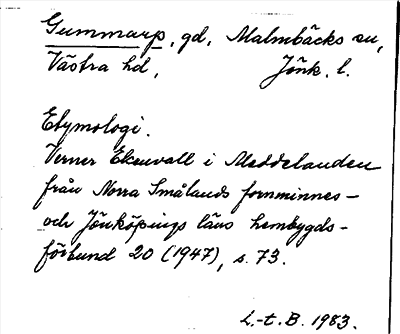 Gummarp, gd, Malmbäcks sn,
Västra hd, Jönk. l.
Etymologi.
Verner Ekenvall i Meddelanden
från Norra Smålands fornminnes-
och Jönköpings läns hembygds-
förbund 20 (1947), s. 73.
L.-t. B. 1983.